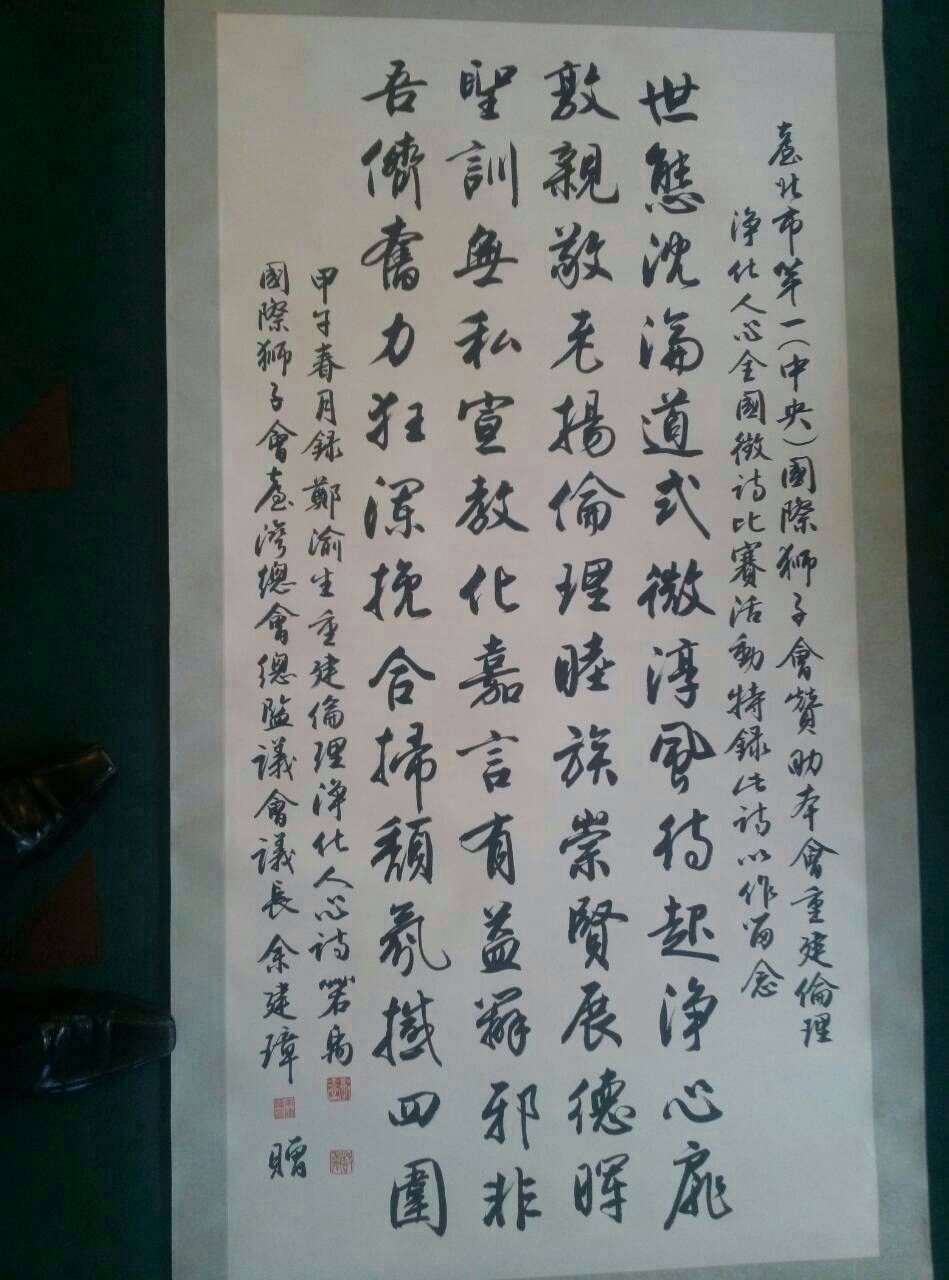 臺北市第一(中央)國際獅子會贊助本會重建倫理
淨化人心全國徵詩比賽活動特錄此詩以作留念
世態沈淪道式微淳風待起淨心扉
敦親敬老揚倫理睦族崇賢展德暉
聖訓無私宣教化嘉言有益辨邪非
吾儕奮力狂瀾挽合掃頹氛撼四圍
甲午春月錄鄭渝生重建倫理淨化人心詩
國際獅子會臺灣總會總監議會議長 余建璋 贈